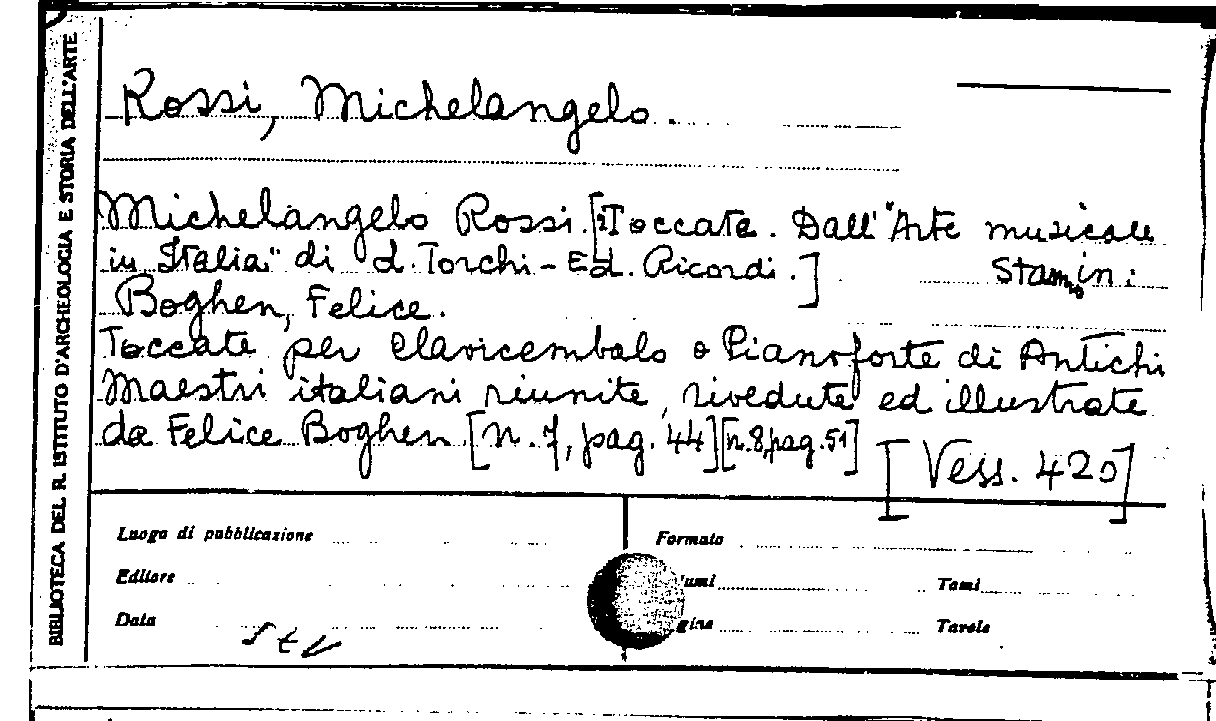 BIBLIOTECA DEL R. ISTITUTO D'ARCHEOLOGIA E STORIA DELL'ARTE
Rossi, Michelangelo.
Michelangelo Rossi. [2 Toccate. Dall' "Arte musicale
in Italia" di L. Torchi - Ed. Ricordi.]
Stamp. in:
Boghen, Felice.
Toccate per clavicembalo o Pianoforte di Antichi
Maestri italiani riunite, rivedute ed illustrate
da Felice Boghen [n. 7, pag. 44] [n. 8, pag. 51]
[Vess. 420]
Luogo di pubblicazione
Formato
Editore
umi
Tomi
Data
gine
Tavole